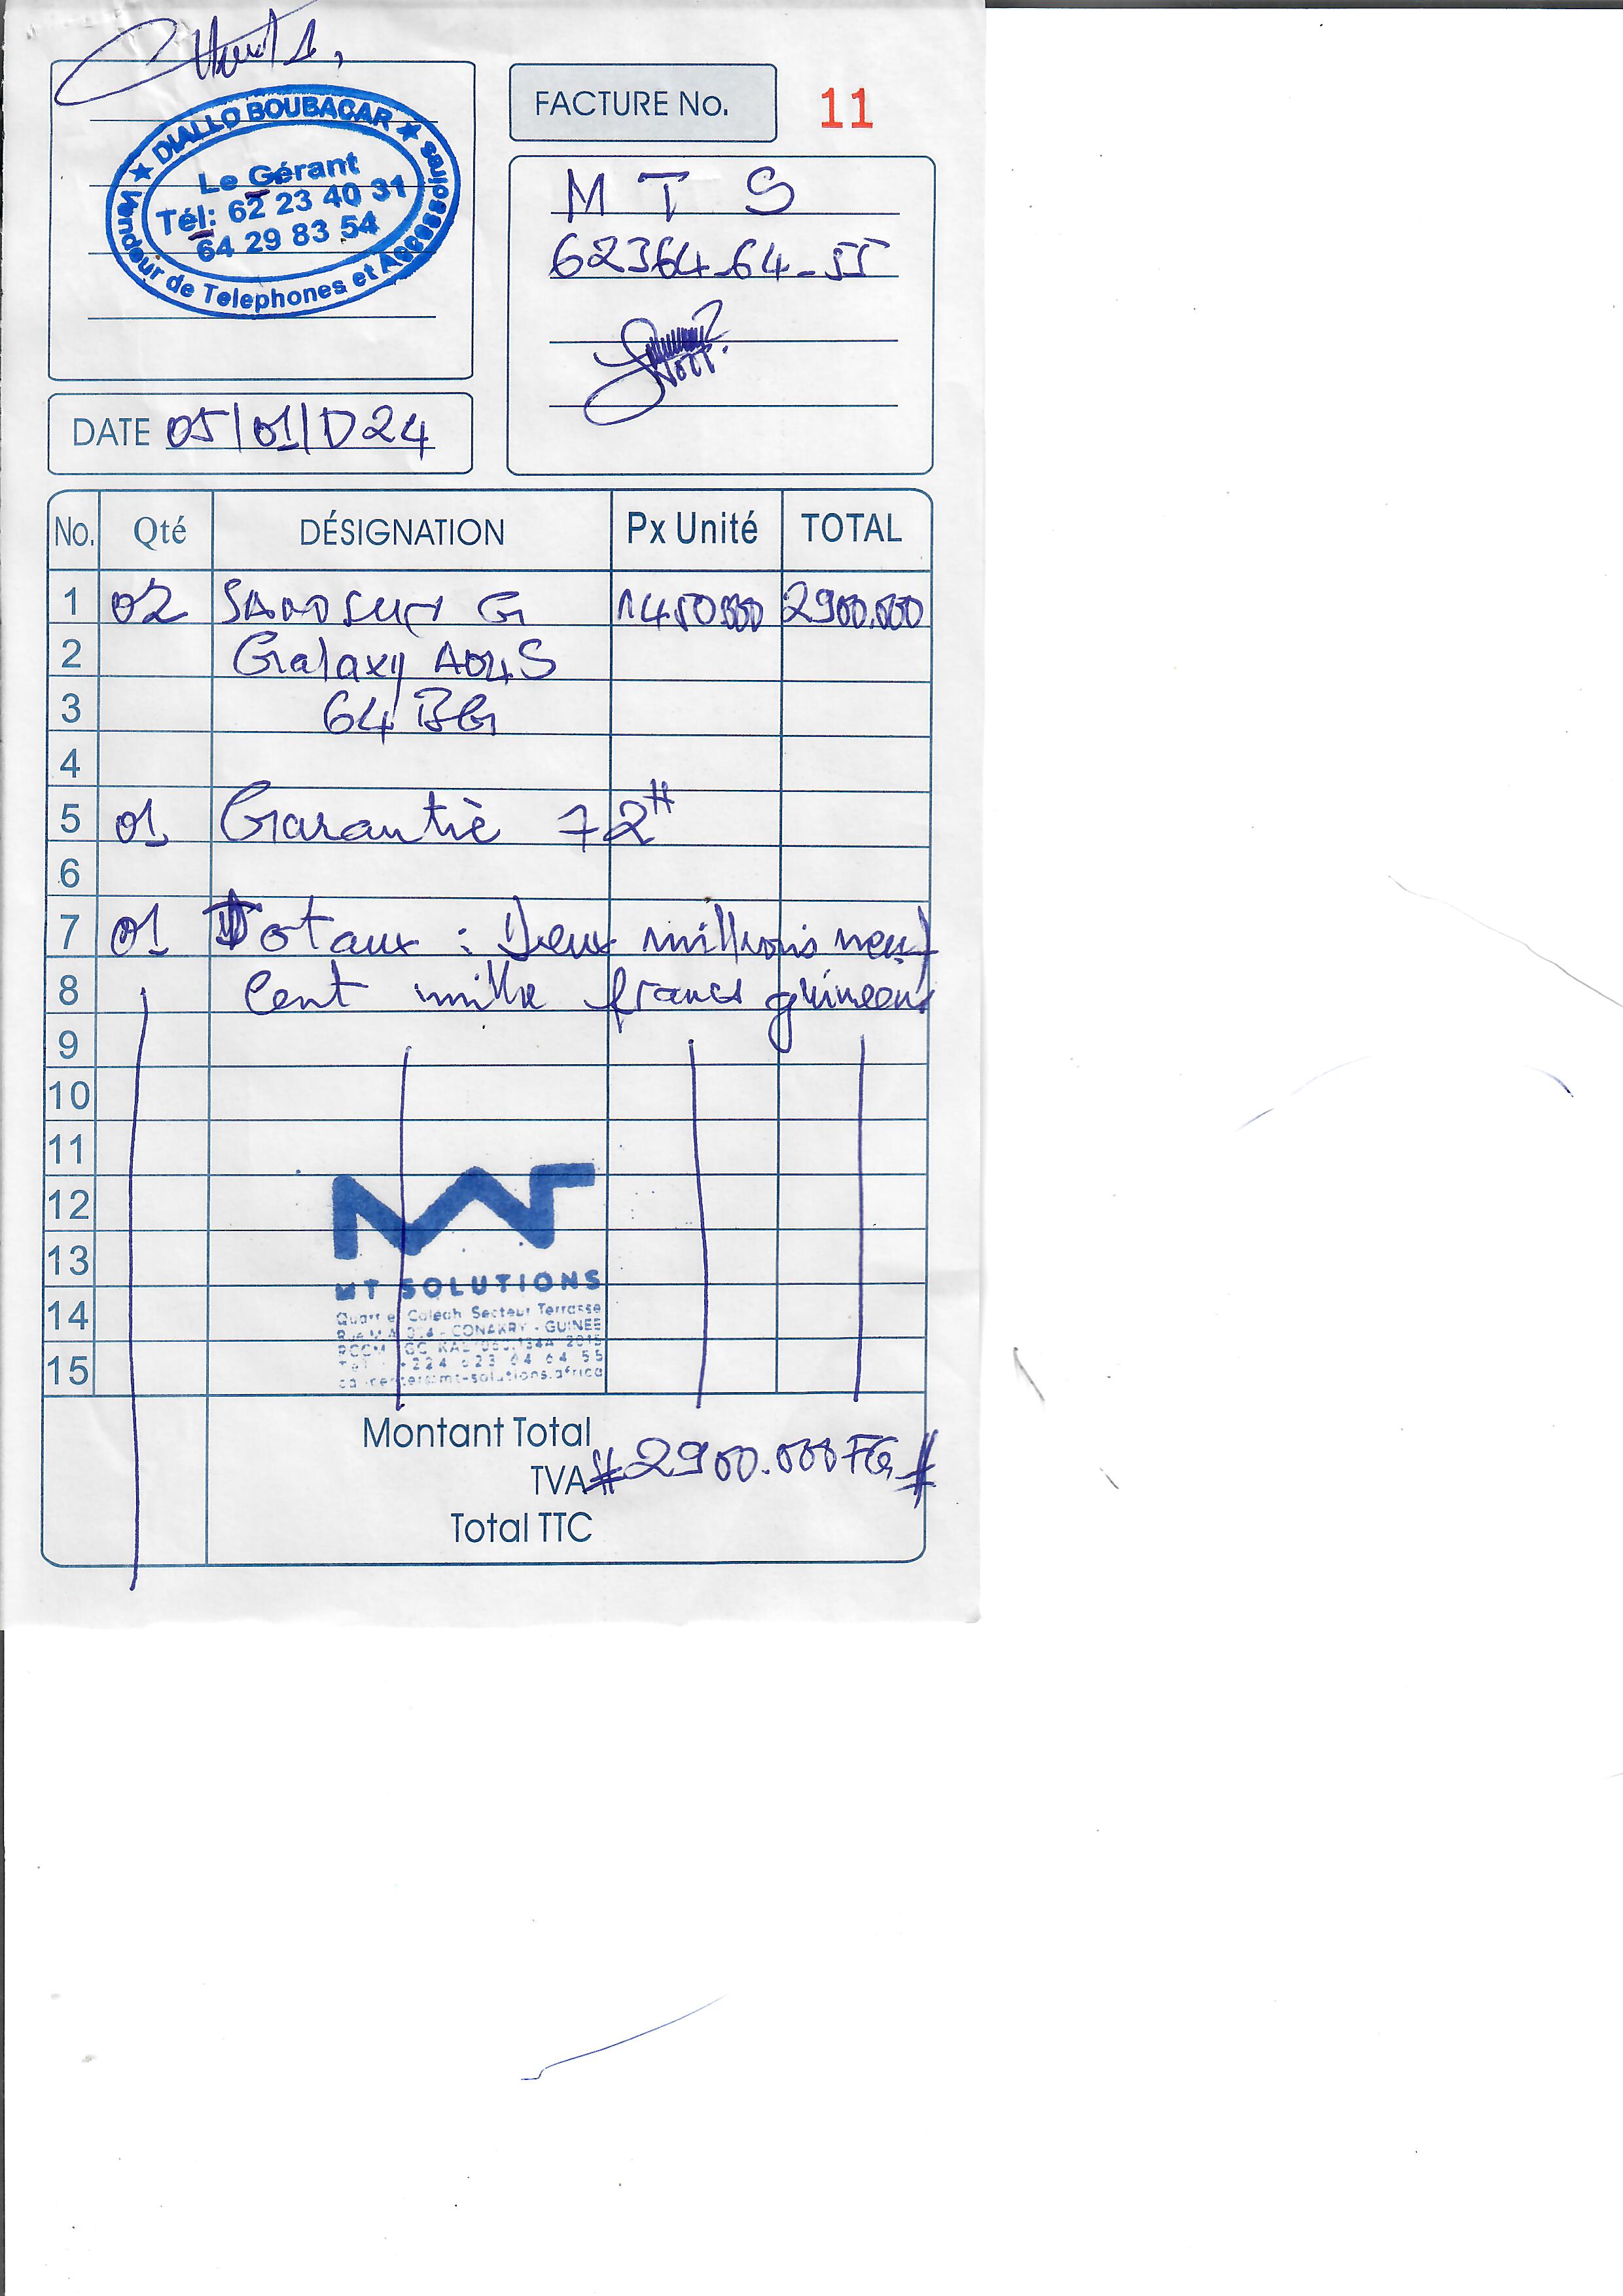 ★ DIALLO BOUBACAR ★
Vendeur de Telephones et Accessoires
Le Gérant
Tél: 62 23 40 31
64 29 83 54
FACTURE No. 11
M T S
62364-64-55
DATE 05/01/2024
No. Qté DÉSIGNATION Px Unité TOTAL
1 02 SAMSUNG G 1450000 2900.000
2 Galaxy A04S
3 64 BG
4
5 01 Garantie 72H
6
7 01 Totaux : Deux millions neuf
8 Cent mille francs guineens
9
10
11
12
13
14
15
MT SOLUTIONS
Quartier Coleah Secteur Terrasse
CONAKRY - GUINEE
+224 623 64 64 55
callcenter@mt-solutions.africa
Montant Total
# 2900.000 FG #
TVA
Total TTC